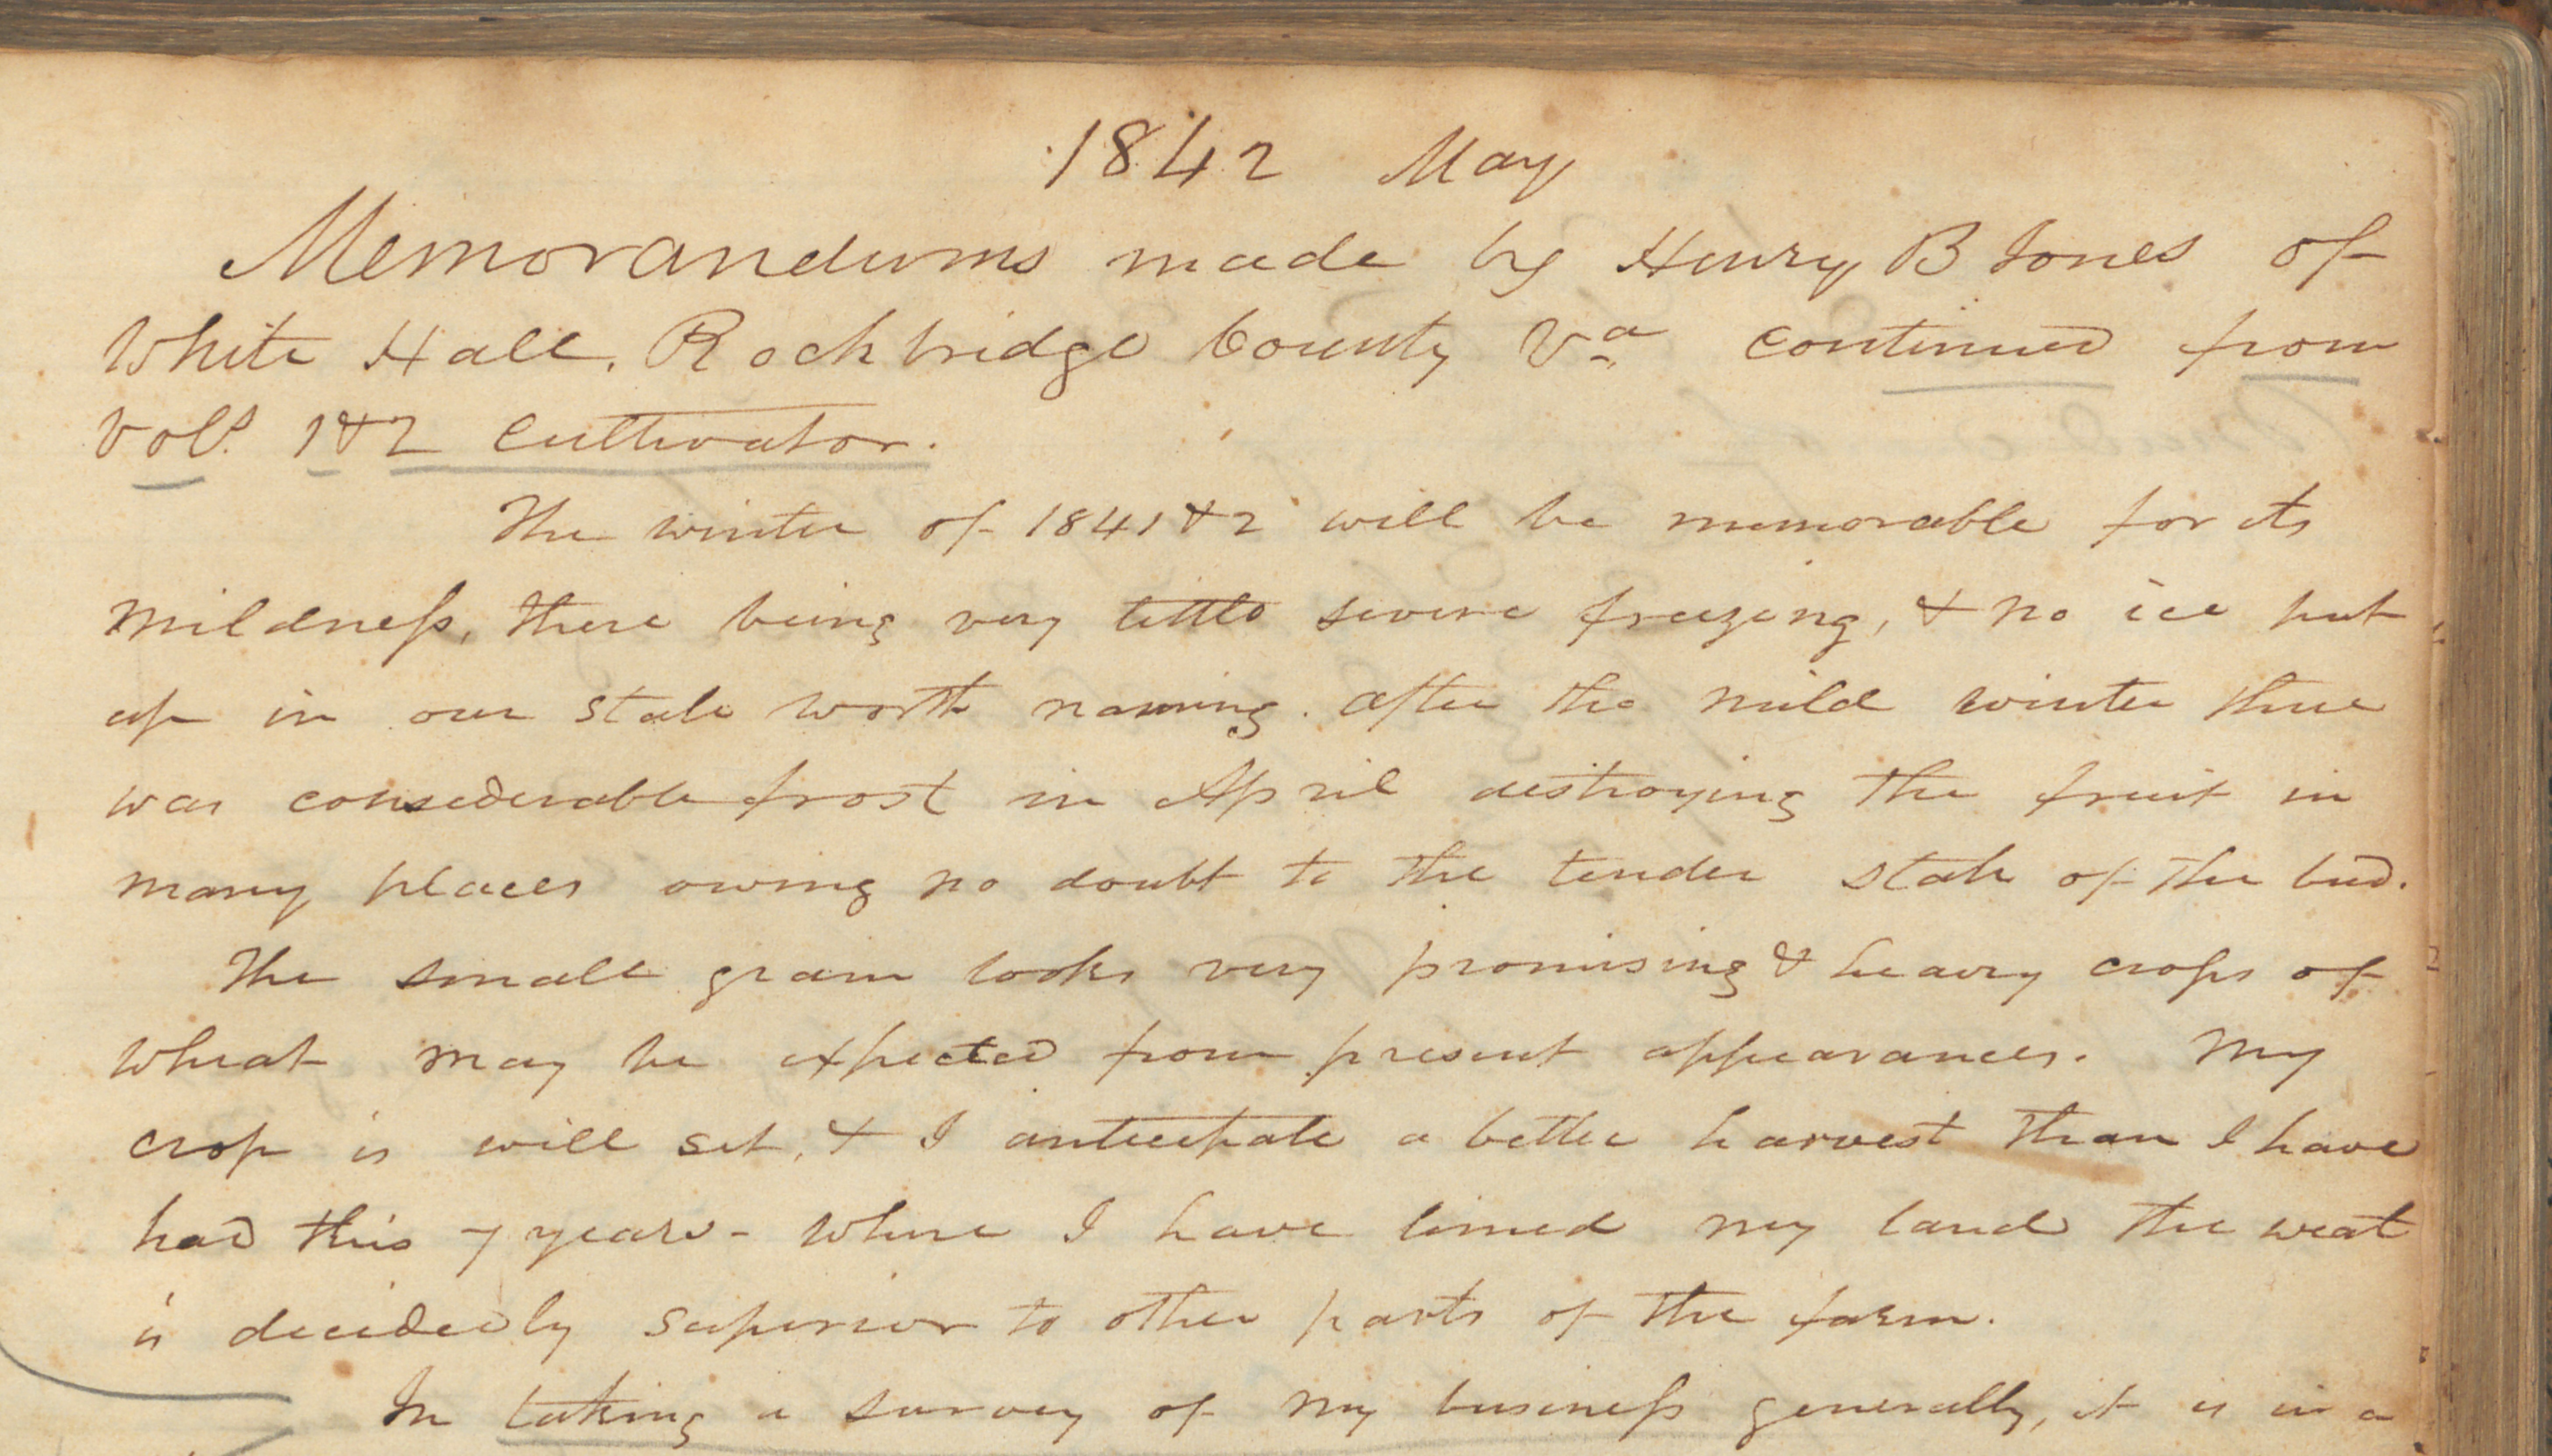 1842 May
Memorandums made by Henry B Jones of
White Hall, Rockbridge County Va continued from
Vols 1 & 2 Cultivator.
The winter of 1841 & 2 will be memorable for its
mildness, there being very little severe freezing, & no ice put
up in our state worth naming. After the mild winter there
was considerable frost in April destroying the fruit in
many places owing no doubt to the tender state of the bud.
The small grain looks very promising & heavy crops of
wheat may be expected from present appearances. My
crop is well set, & I anticipate a better harvest than I have
had this 7 years - Where I have limed my land the weat
is decidedly superior to other parts of the farm.
In taking a survey of my business generally, it is in a